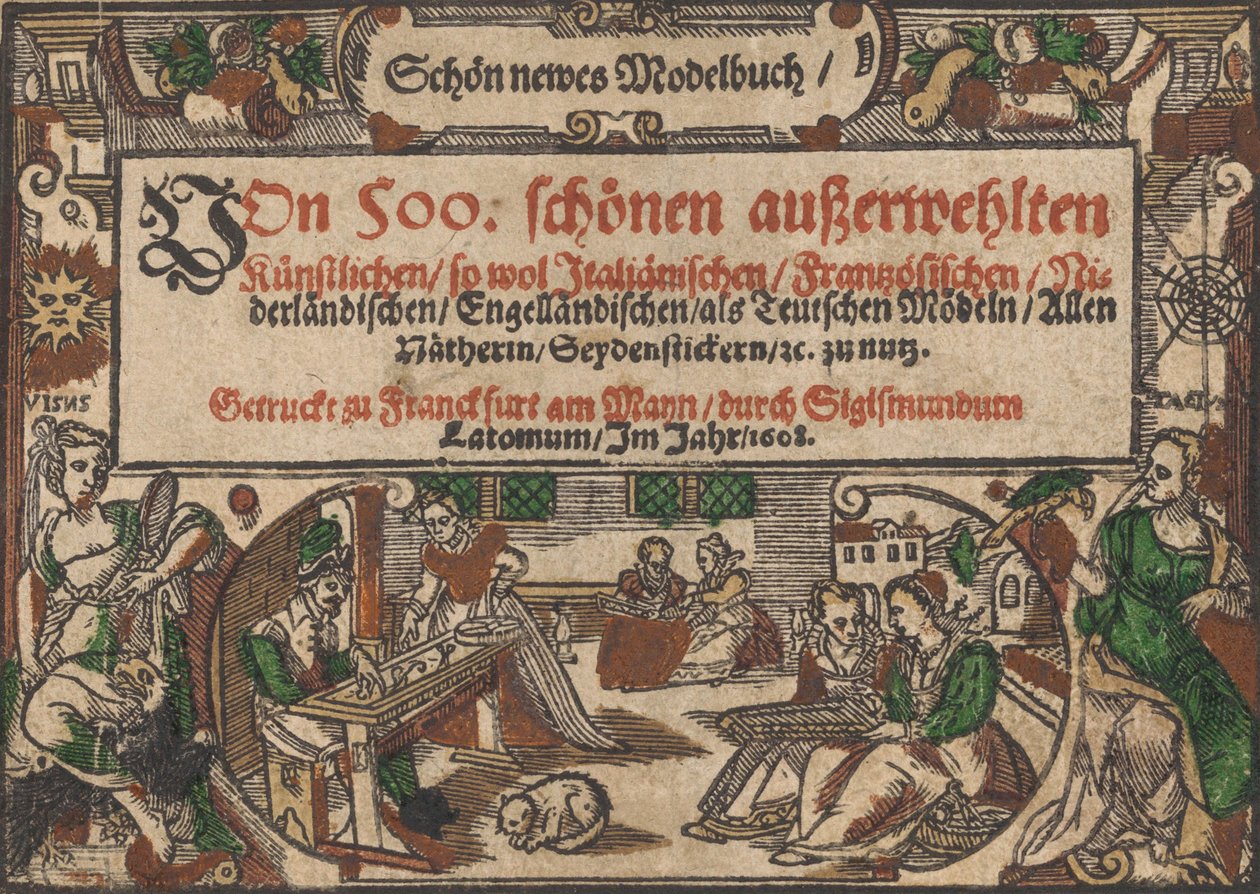 Schön newes Modelbuch /
VOn 500. schönen außerwehlten
Künstlichen / so wol Italiänischen / Frantzösischen / Ni-
derländischen / Engelländischen / als Teutschen Mödeln / Allen
Nätherin / Seydenstickern / ꝛc. zu nutz.
Getruckt zu Franckfurt am Mayn / durch Sigismundum
Latomum / Im Jahr / 1608.
VISVS
TACTVS